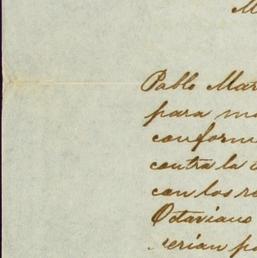 M
Pablo Mar
para ma
conforme
contra la
con los re
Octaviano
serian p